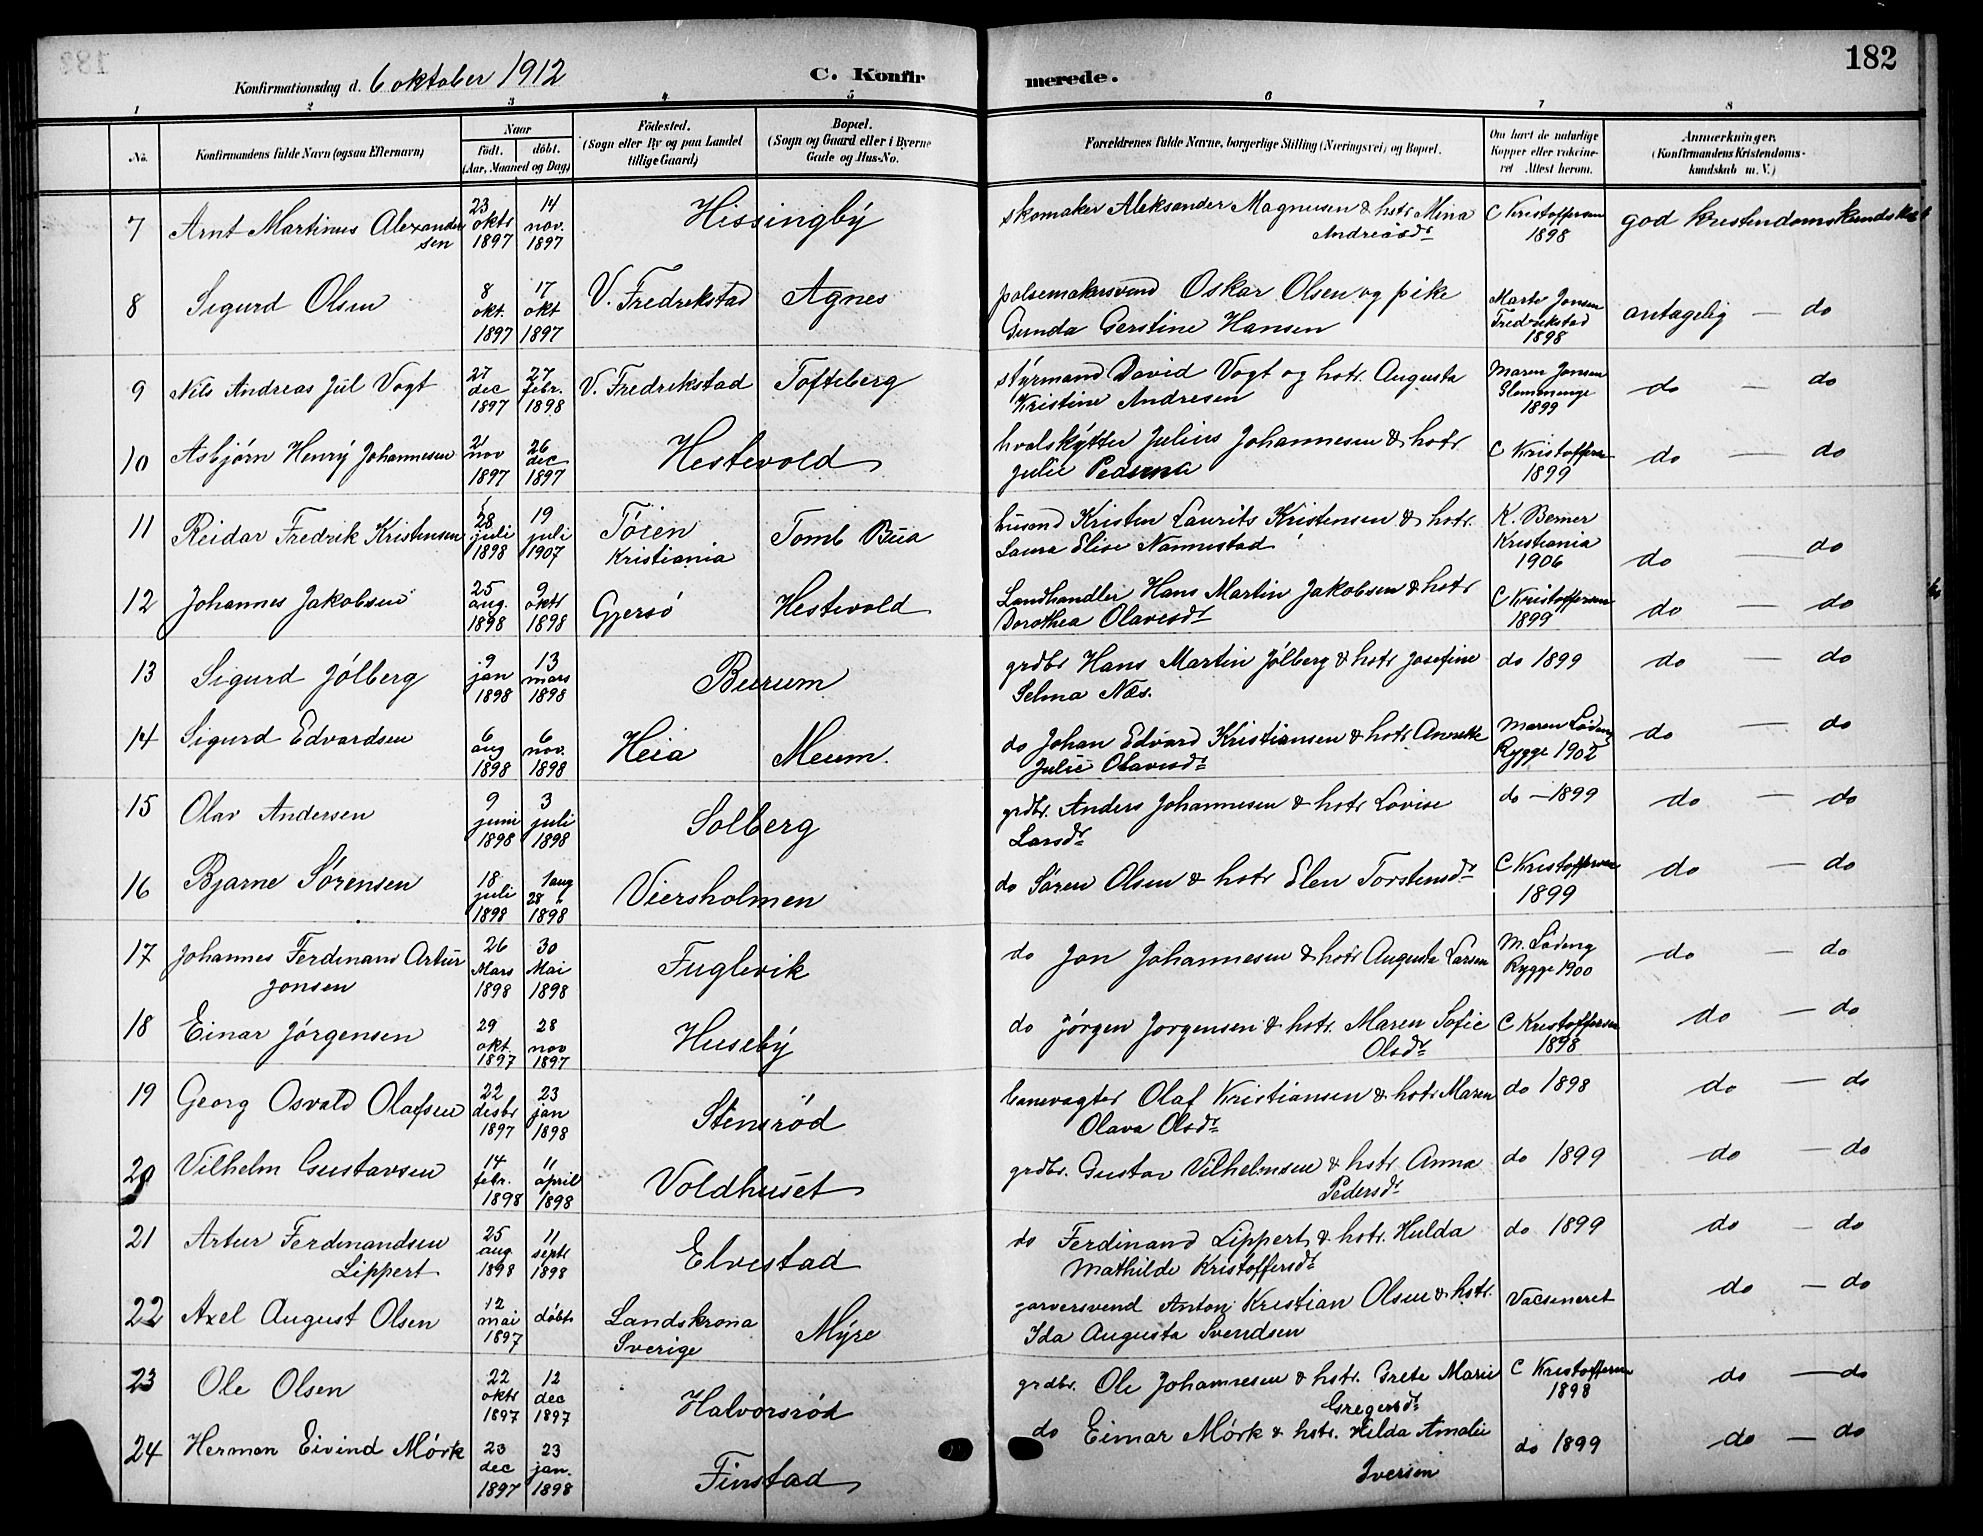 182
Konfirmationsdag d. 6 oktober 1912
C. Konfirmerede.
1 2 3 4 5 6 7 8
No. Konfirmandens fulde Navn (ogsaa Efternavn)
Naar födt. döbt. (Aar, Maaned og Dag)
Födested. (Sogn eller By og paa Landet tillige Gaard)
Bopæl. (Sogn og Gaard eller i Byerne Gade og Hus-No.
Forældrenes fulde Navne, borgerlige Stilling (Næringsvei) og Bopæl.
Om havt de naturlige Kopper eller vakcineret Attest herom.
Anmærkninger. (Konfirmandens Kristendomskundskab m. V.)
7 Arnt Martinus Alexandersen 23 oktr 1897 14 nov. 1897 Hissingby skomaker Aleksander Magnusen & hstr Mina Andreasdr C Kristoffersen 1898 god kristendomskundskab
8 Sigurd Olsen 8 okt. 1897 17 okt 1897 V. Fredrikstad Agnes pølsemakersvend Oskar Olsen og pike Gunda Gerstine Hansen Marte Jonsen Fredrikstad 1898 antagelig — do
9 Nils Andreas Jul Vogt 27 dec 1897 27 febr. 1898 V. Fredrikstad Tofteberg styrmand David Vogt og hstr. Augusta Kristine Andresen Maren Jonsen Glemminge 1899 do — do
10 Asbjørn Henry Johannesen 21 nov 1897 26 dec 1897 Hestevold hvalskytter Julius Johannesen & hstr. Julie Pedersen C Kristoffersen 1899 do — do
11 Reidar Fredrik Kristensen 28 juli 1898 19 juli 1907 Töien Kristiania Tomb Bua husmd Kristen Laurits Kristensen & hstr. Laura Elise Nannestad K. Berner Kristiania 1906 do — do
12 Johannes Jakobsen 25 aug. 1898 9 oktr 1898 Gjersö Hestevold Landhandler Hans Martin Jakobsen & hstr Dorothea Olavesdr C Kristoffersen 1899 do — do
13 Sigurd Jölberg 9 jan 1898 13 mars 1898 Burum grdbr Hans Martin Jölberg & hstr Josefine Selma Næs. do 1899 do — do
14 Sigurd Edvardsen 6 aug 1898 6 nov. 1898 Heia Meum. do Johan Edvard Kristiansen & hstr Annette Julie Olavesdr Maren Løding Rygge 1902 do — do
15 Olav Andersen 9 juni 1898 3 juli 1898 Solberg grdbr. Anders Johannesen & hstr Lovise Larsdr do — 1899 do — do
16 Bjarne Sörensen 18 juli 1898 1 aug 28 1898 Viersholmen do Sören Olsen & hstr Elen Torstensdr C Kristoffersen 1899 do — do
17 Johannes Ferdinand Artur Jonsen 26 Mars 1898 30 Mai 1898 Fuglevik do Jon Johannesen & hstr Augusta Larsen M. Løding Rygge 1900 do — do
18 Einar Jörgensen 29 okt. 1897 28 nov 1897 Huseby do Jörgen Jorgensen & hstr. Maren Sofie Olsdr C Kristoffersen 1898 do — do
19 Georg Osvald Olafsen 22 desbr 1897 23 jan 1898 Stensröd banevagter Olaf Kristiansen & hstr Maren Olava Olsdr do 1898 do — do
20 Vilhelm Gustavsen 14 febr. 1898 11 april 1898 Voldhuset grdbr. Gustav Vilhelmsen & hstr. Anna Pedersdr do 1899 do — do
21 Artur Ferdinandsen Lippert 25 aug. 1898 11 septr 1898 Elvestad do Ferdinand Lippert & hstr. Hulda Mathilde Kristoffersdr do 1899 do — do
22 Axel August Olsen 12 mai 1897 döbt Landskrona Sverige Myre garversvend Anton Kristian Olsen & hstr. Ida Augusta Svendsen Vacsineret do — do
23 Ole Olsen 22 oktr 1897 12 dec 1897 Halvorsröd grdbr. Ole Johannesen & hstr. Grete Marie Gregersdr C Kristoffersen 1898 do — do
24 Herman Eivind Mörk 23 dec 1897 23 jan. 1898 Finstad do Eimar Mörk & hstr. Hilda Amalie Iversen do 1899 do — do